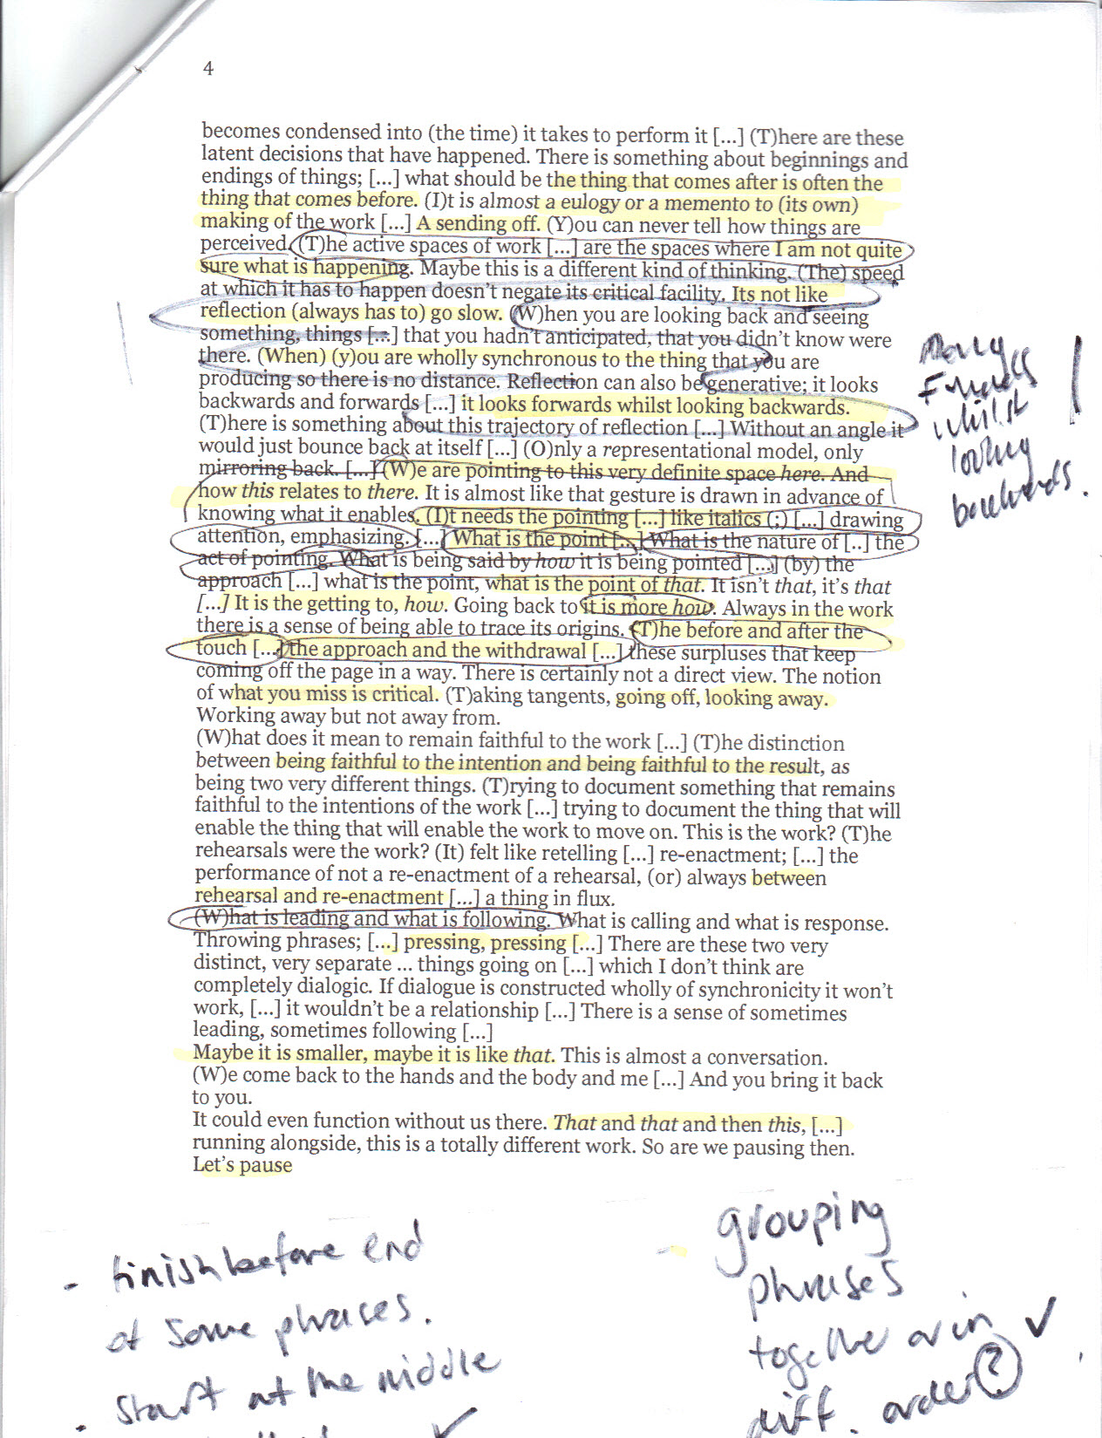 4
becomes condensed into (the time) it takes to perform it [...] (T)here are these
latent decisions that have happened. There is something about beginnings and
endings of things; [...] what should be the thing that comes after is often the
thing that comes before. (I)t is almost a eulogy or a memento to (its own)
making of the work [...] A sending off. (Y)ou can never tell how things are
perceived. (T)he active spaces of work [...] are the spaces where I am not quite
sure what is happening. Maybe this is a different kind of thinking. (The) speed
at which it has to happen doesn't negate its critical facility. Its not like
reflection (always has to) go slow. (W)hen you are looking back and seeing
something, things [...] that you hadn't anticipated, that you didn't know were
there. (When) (y)ou are wholly synchronous to the thing that you are
producing so there is no distance. Reflection can also be generative; it looks
backwards and forwards [...] it looks forwards whilst looking backwards.
(T)here is something about this trajectory of reflection [...] Without an angle it
would just bounce back at itself [...] (O)nly a representational model, only
mirroring back. [...] (W)e are pointing to this very definite space here. And
how this relates to there. It is almost like that gesture is drawn in advance of
knowing what it enables. (I)t needs the pointing [...] like italics (;) [...] drawing
attention, emphasizing. [...] What is the point [...] What is the nature of [..] the
act of pointing. What is being said by how it is being pointed [...] (by) the
approach [...] what is the point, what is the point of that. It isn't that, it's that
[...] It is the getting to, how. Going back to it is more how. Always in the work
there is a sense of being able to trace its origins. (T)he before and after the
touch [...] the approach and the withdrawal [...] these surpluses that keep
coming off the page in a way. There is certainly not a direct view. The notion
of what you miss is critical. (T)aking tangents, going off, looking away.
Working away but not away from.
(W)hat does it mean to remain faithful to the work [...] (T)he distinction
between being faithful to the intention and being faithful to the result, as
being two very different things. (T)rying to document something that remains
faithful to the intentions of the work [...] trying to document the thing that will
enable the thing that will enable the work to move on. This is the work? (T)he
rehearsals were the work? (It) felt like retelling [...] re-enactment; [...] the
performance of not a re-enactment of a rehearsal, (or) always between
rehearsal and re-enactment [...] a thing in flux.
(W)hat is leading and what is following. What is calling and what is response.
Throwing phrases; [...] pressing, pressing [...] There are these two very
distinct, very separate ... things going on [...] which I don't think are
completely dialogic. If dialogue is constructed wholly of synchronicity it won't
work, [...] it wouldn't be a relationship [...] There is a sense of sometimes
leading, sometimes following [...]
Maybe it is smaller, maybe it is like that. This is almost a conversation.
(W)e come back to the hands and the body and me [...] And you bring it back
to you.
It could even function without us there. That and that and then this, [...]
running alongside, this is a totally different work. So are we pausing then.
Let's pause
whilst
looking
backwards.
- finish before end
of some phrases.
- start at the middle
grouping
phrases
together or in ✓
diff. order ?